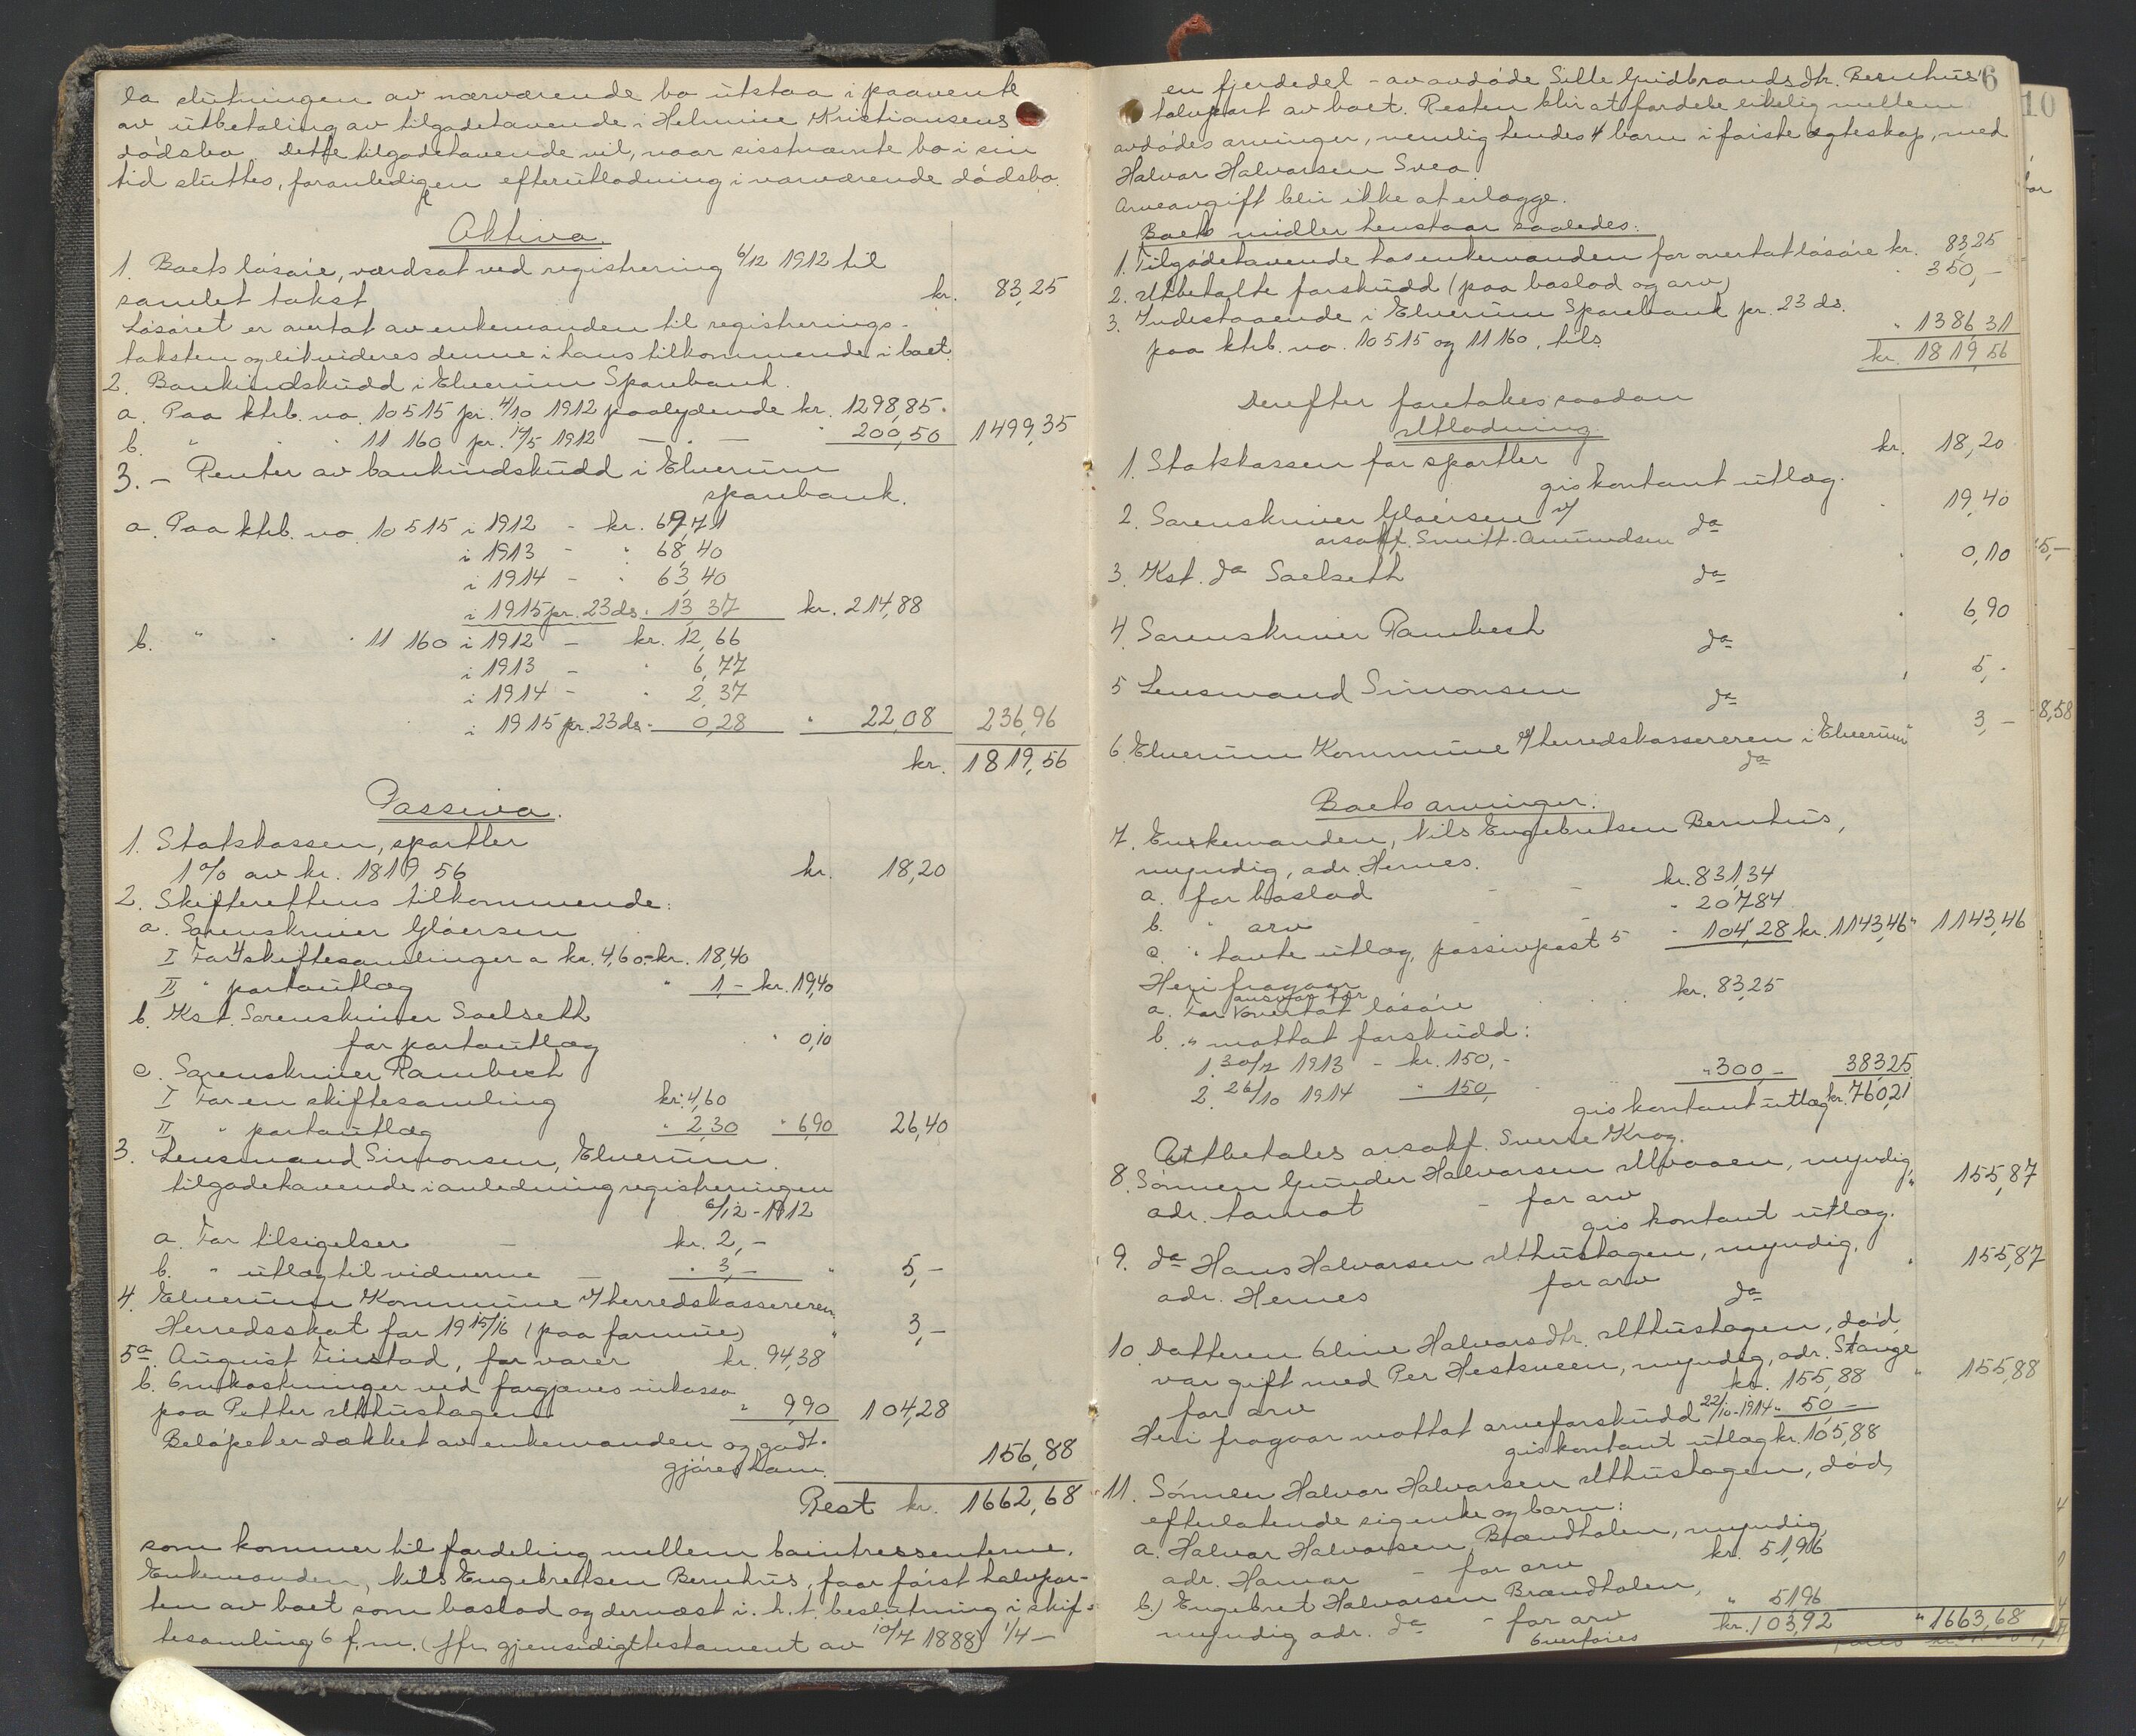 la slutningen av nærværende bo utstaa i paavente
av utbetaling av tilgodehavende i Helmine Kristiansens
dødsbo. Dette tilgodehavende vil, naar sisstnævnte bo i sin
tid sluttes, foranledigen efterutlodning i nærværende dødsbo.
Aktiva.
1. Boets løsøre, værdsat ved registrering 6/12 1912 til
samlet takst kr. 83,25
Løsøret er overtat av enkemanden til registrerings-
taksten og likvideres denne i hans tilkommende i boet.
2. Bankindskudd i Elverum Sparebank.
a. Paa ktrb. no. 10515 pr. 4/10 1912 paalydende kr. 1298,85.
b. " " " 11160 pr. 14/5 1912 — " — " 200,50 1499,35
3. - Renter av bankindskudd i Elverum
sparebank.
a. Paa ktrb. no. 10515 i 1912 - kr. 69,71
i 1913 - " 68,40
i 1914 - " 63,40
i 1915 pr. 23 ds. " 13,37 kr. 214,88
b. " " " 11160 i 1912 - kr. 12,66
i 1913 - " 6,77
i 1914 - " 2,37
i 1915 pr. 23 ds. - 0,28 " 22,08 236,96
kr. 1819,56
Passiva.
1. Statskassen, sportler
1 % av kr. 1819,56 kr. 18,20
2. Skifterettens tilkommende:
a. Sorenskriver Gløersen
I For 4 skiftesamlinger a kr. 4,60 = kr. 18,40
II " portoutlæg " 1,- kr. 19,40
b. Kst. Sorenskriver Saelseth
for portoutlæg " 0,10
c. Sorenskriver Rambech
I For en skiftesamling kr. 4,60
II " portoutlæg " 2,30 " 6,90 26,40
3. Lensmand Simonsen, Elverum.
tilgodehavende i anledning registreringen
6/12 - 1912
a. For tilsigelser — kr. 2,-
b. " utlæg til vidnerne — " 3,- " 5,-
4. Elverum Kommune v/ herredskassereren
Herredsskat for 1915/16 (paa formue) " 3,-
5 a. August Finstad, for varer kr. 94,38
b. Omkostninger ved forgjæves inkasso
paa Petter Uthushagen " 9,90 104,28
Beløpet er dækket av enkemanden og godt-
gjøres ham. 156,88
Rest kr. 1662,68
som kommer til fordeling mellem bointressenterne.
Enkemanden, Nils Engebretsen Bernhus, faar først halvpar-
ten av boet som boslod og dernæst i. h. t. beslutning i skif-
tesamling 6 f. m. (jfr. gjensidigt testament av 10/7 1888) 1/4 —
6
en fjerdedel - av avdøde Sille Gudbrandsdtr. Bernhus'
halvpart av boet. Resten blir at fordele likelig mellem
avdødes arvinger, nemlig hendes 4 barn i første ægteskap, med
Halvor Halvorsen Svea.
Arveavgift blir ikke at erlægge.
Boets midler henstaar saaledes:
1. Tilgodehavende hos enkemanden for overtat løsøre kr. 83,25
2. Utbetalte forskudd (paa boslod og arv) " 350,-
3. Indestaaende i Elverum Sparebank pr. 23 ds.
paa ktrb. no. 10515 og 11160, tils. " 1386,31
kr. 1819,56
Derefter foretokes saadan
Utlodning.
1. Statskassen for sportler kr. 18,20
gis kontant utlæg.
2. Sorenskriver Gløersen v/ " 19,40
orsakf. Smitt-Amundsen do
3. Kst. do Saelseth do " 0,10
4. Sorenskriver Rambech do " 6,90
5 Lensmand Simonsen do " 5,-
6. Elverum Kommune v/ herredskassereren i Elverum " 3,-
do
Boets arvinger:
7. Enkemanden, Nils Engebretsen Bernhus,
myndig, adr. Hernes.
a. for boslod - - kr. 831,34
b. " arv " 207,84
c. " havte utlæg, passivpost 5 " 104,28 kr. 1143,46 " 1143,46
Heri fragaar
a. For ansvar for overtat løsøre kr. 83,25
b. " mottat forskudd:
1. 30/7 1913 - kr. 150,-
2. 26/10 1914 " 150, " 300 - 383,25
gis kontant utlæg kr. 760,21
Utbetales orsakf. Sverre Krog.
8. Sønnen Gunder Halvorsen Moaaen, myndig, " 155,87
adr. - for arv
gis kontant utlæg.
9. do Hans Halvorsen Uthushagen, myndig, " 155,87
adr. Hernes for arv do
10. Datteren Oline Halvorsdtr. Uthushagen, død,
var gift med Per Hestsveen, myndig, adr. Stange
for arv kr. 155,88 " 155,88
Heri fragaar mottat arveforskudd 22/10-1914 " 50 -
gis kontant utlæg kr. 105,88
11. Sønnen Halvor Halvorsen Uthushagen, død,
efterlatende sig enke og barn:
a. Halvor Halvorsen Brændholen, myndig,
adr. Hamar - for arv kr. 51,96
b.) Engebret Halvorsen Brændholen,
myndig adr. do - for arv " 51,96
Overføres kr. 103,92 " 1663,68
10
for
15,-
8,58